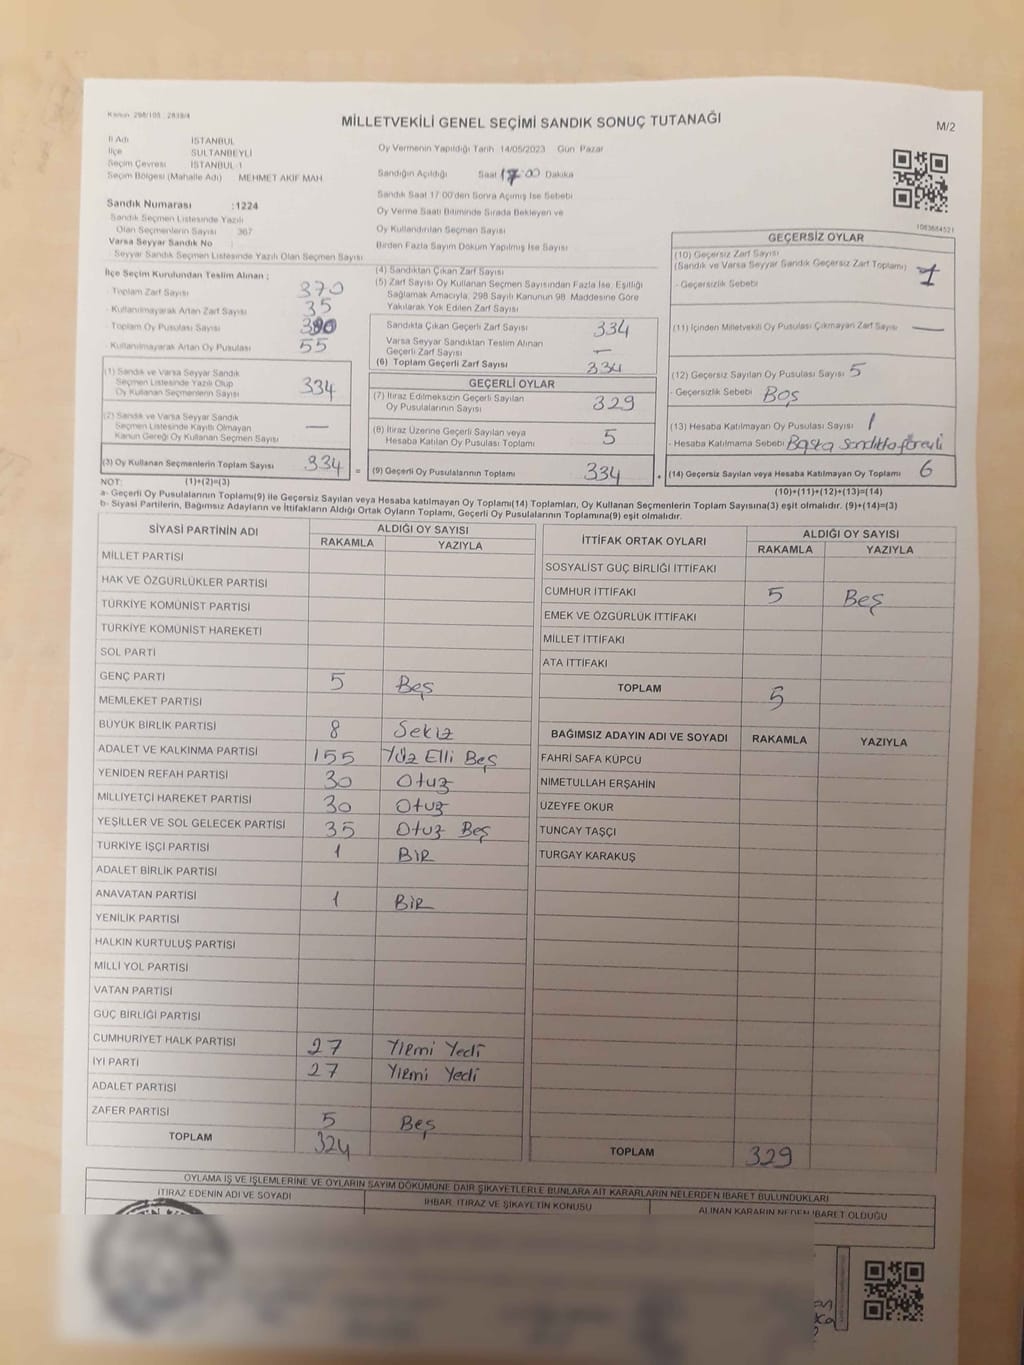 Kanun 298/105 : 2839/4
MİLLETVEKİLİ GENEL SEÇİMİ SANDIK SONUÇ TUTANAĞI
M/2
İl Adı İSTANBUL
İlçe SULTANBEYLİ
Seçim Çevresi İSTANBUL-1
Seçim Bölgesi (Mahalle Adı) MEHMET AKİF MAH.
Oy Vermenin Yapıldığı Tarih 14/05/2023 Gün Pazar
Sandığın Açıldığı Saat 17:00 Dakika
Sandık Saat 17:00'den Sonra Açmış İse Sebebi
Oy Verme Saati Bitiminde Sırada Bekleyen ve
Oy Kullandırılan Seçmen Sayısı
Birden Fazla Sayım Döküm Yapılmış İse Sayısı
Sandık Numarası :1224
Sandık Seçmen Listesinde Yazılı
Olan Seçmenlerin Sayısı 367
Varsa Seyyar Sandık No :
Seyyar Sandık Seçmen Listesinde Yazılı Olan Seçmen Sayısı
İlçe Seçim Kurulundan Teslim Alınan :
- Toplam Zarf Sayısı 370
- Kullanılmayarak Artan Zarf Sayısı 35
- Toplam Oy Pusulası Sayısı
- Kullanılmayarak Artan Oy Pusulası 55
(1) Sandık ve Varsa Seyyar Sandık
Seçmen Listesinde Yazılı Olup
Oy Kullanan Seçmenlerin Sayısı 334
(2) Sandık ve Varsa Seyyar Sandık
Seçmen Listesinde Kayıtlı Olmayan
Kanun Gereği Oy Kullanan Seçmen Sayısı —
(3) Oy Kullanan Seçmenlerin Toplam Sayısı 334
(4) Sandıktan Çıkan Zarf Sayısı
(5) Zarf Sayısı Oy Kullanan Seçmen Sayısından Fazla İse, Eşitliği
Sağlamak Amacıyla, 298 Sayılı Kanunun 98. Maddesine Göre
Yakılarak Yok Edilen Zarf Sayısı
Sandıkta Çıkan Geçerli Zarf Sayısı 334
Varsa Seyyar Sandıktan Teslim Alınan
Geçerli Zarf Sayısı —
(6) Toplam Geçerli Zarf Sayısı 334
GEÇERLİ OYLAR
(7) İtiraz Edilmeksizin Geçerli Sayılan
Oy Pusulalarının Sayısı 329
(8) İtiraz Üzerine Geçerli Sayılan veya
Hesaba Katılan Oy Pusulası Toplamı 5
= (9) Geçerli Oy Pusulalarının Toplamı 334
1083684521
GEÇERSİZ OYLAR
(10) Geçersiz Zarf Sayısı
(Sandık ve Varsa Seyyar Sandık Geçersiz Zarf Toplamı)
- Geçersizlik Sebebi
(11) İçinden Milletvekili Oy Pusulası Çıkmayan Zarf Sayısı —
(12) Geçersiz Sayılan Oy Pusulası Sayısı 5
- Geçersizlik Sebebi Boş
(13) Hesaba Katılmayan Oy Pusulası Sayısı 1
- Hesaba Katılmama Sebebi Başka Sandıkta
+ (14) Geçersiz Sayılan veya Hesaba Katılmayan Oy Toplamı 6
NOT: (1)+(2)=(3)
(10)+(11)+(12)+(13)=(14)
a- Geçerli Oy Pusulalarının Toplamı(9) ile Geçersiz Sayılan veya Hesaba katılmayan Oy Toplamı(14) Toplamları, Oy Kullanan Seçmenlerin Toplam Sayısına(3) eşit olmalıdır. (9)+(14)=(3)
b- Siyasi Partilerin, Bağımsız Adayların ve İttifakların Aldığı Ortak Oyların Toplamı, Geçerli Oy Pusulalarının Toplamına(9) eşit olmalıdır.
SİYASİ PARTİNİN ADI ALDIĞI OY SAYISI
RAKAMLA YAZIYLA
MİLLET PARTİSİ
HAK VE ÖZGÜRLÜKLER PARTİSİ
TÜRKİYE KOMÜNİST PARTİSİ
TÜRKİYE KOMÜNİST HAREKETİ
SOL PARTİ
GENÇ PARTİ 5 Beş
MEMLEKET PARTİSİ
BÜYÜK BİRLİK PARTİSİ 8 Sekiz
ADALET VE KALKINMA PARTİSİ 155 Yüz Elli Beş
YENİDEN REFAH PARTİSİ 30 Otuz
MİLLİYETÇİ HAREKET PARTİSİ 30 Otuz
YEŞİLLER VE SOL GELECEK PARTİSİ 35 Otuz Beş
TÜRKİYE İŞÇİ PARTİSİ 1 BİR
ADALET BİRLİK PARTİSİ
ANAVATAN PARTİSİ 1 BİR
YENİLİK PARTİSİ
HALKIN KURTULUŞ PARTİSİ
MİLLİ YOL PARTİSİ
VATAN PARTİSİ
GÜÇ BİRLİĞİ PARTİSİ
CUMHURİYET HALK PARTİSİ 27 Yirmi Yedi
İYİ PARTİ 27 Yirmi Yedi
ADALET PARTİSİ
ZAFER PARTİSİ 5 Beş
TOPLAM 324
İTTİFAK ORTAK OYLARI ALDIĞI OY SAYISI
RAKAMLA YAZIYLA
SOSYALİST GÜÇ BİRLİĞİ İTTİFAKI
CUMHUR İTTİFAKI 5 Beş
EMEK VE ÖZGÜRLÜK İTTİFAKI
MİLLET İTTİFAKI
ATA İTTİFAKI
TOPLAM 5
BAĞIMSIZ ADAYIN ADI VE SOYADI RAKAMLA YAZIYLA
FAHRİ SAFA KÜPCÜ
NİMETULLAH ERŞAHİN
UZEYFE OKUR
TUNCAY TAŞÇI
TURGAY KARAKUŞ
TOPLAM 329
OYLAMA İŞ VE İŞLEMLERİNE VE OYLARIN SAYIM DÖKÜMÜNE DAİR ŞİKAYETLERLE BUNLARA AİT KARARLARIN NELERDEN İBARET BULUNDUKLARI
İTİRAZ EDENİN ADI VE SOYADI İHBAR, İTİRAZ VE ŞİKAYETİN KONUSU ALINAN KARARIN NEDEN İBARET OLDUĞU